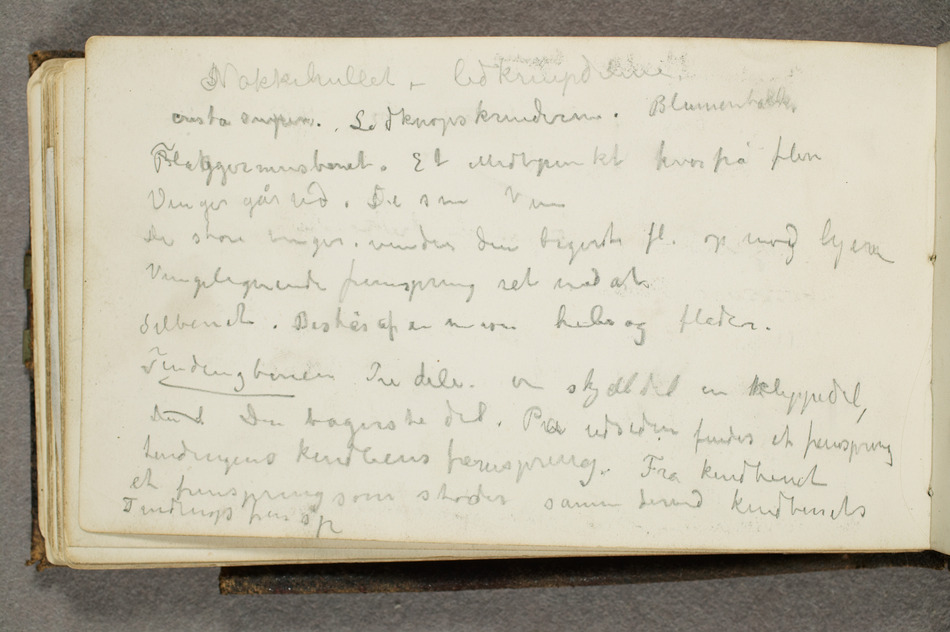 Nakkehullet -
crista Ledknopskruderne. Blumenbach
Flaggermusbenet. Et Midtpunkt hvorpå flere
Vinger går ud. De sm
De store vinger. vender den bagerste fl. op mod hjern
Vingelignende fremspring ret nedad
Silbenet. Består af en m hule og flader.
Tindingbenen Tre dele. en skjældel en klippedel,
Den bagerste del. Paa udsiden findes et fremspring
tindingens kindbens fremspring. Fra kindbenet
et fremspring som støder sammen med kindbenets
Tindings frem sp